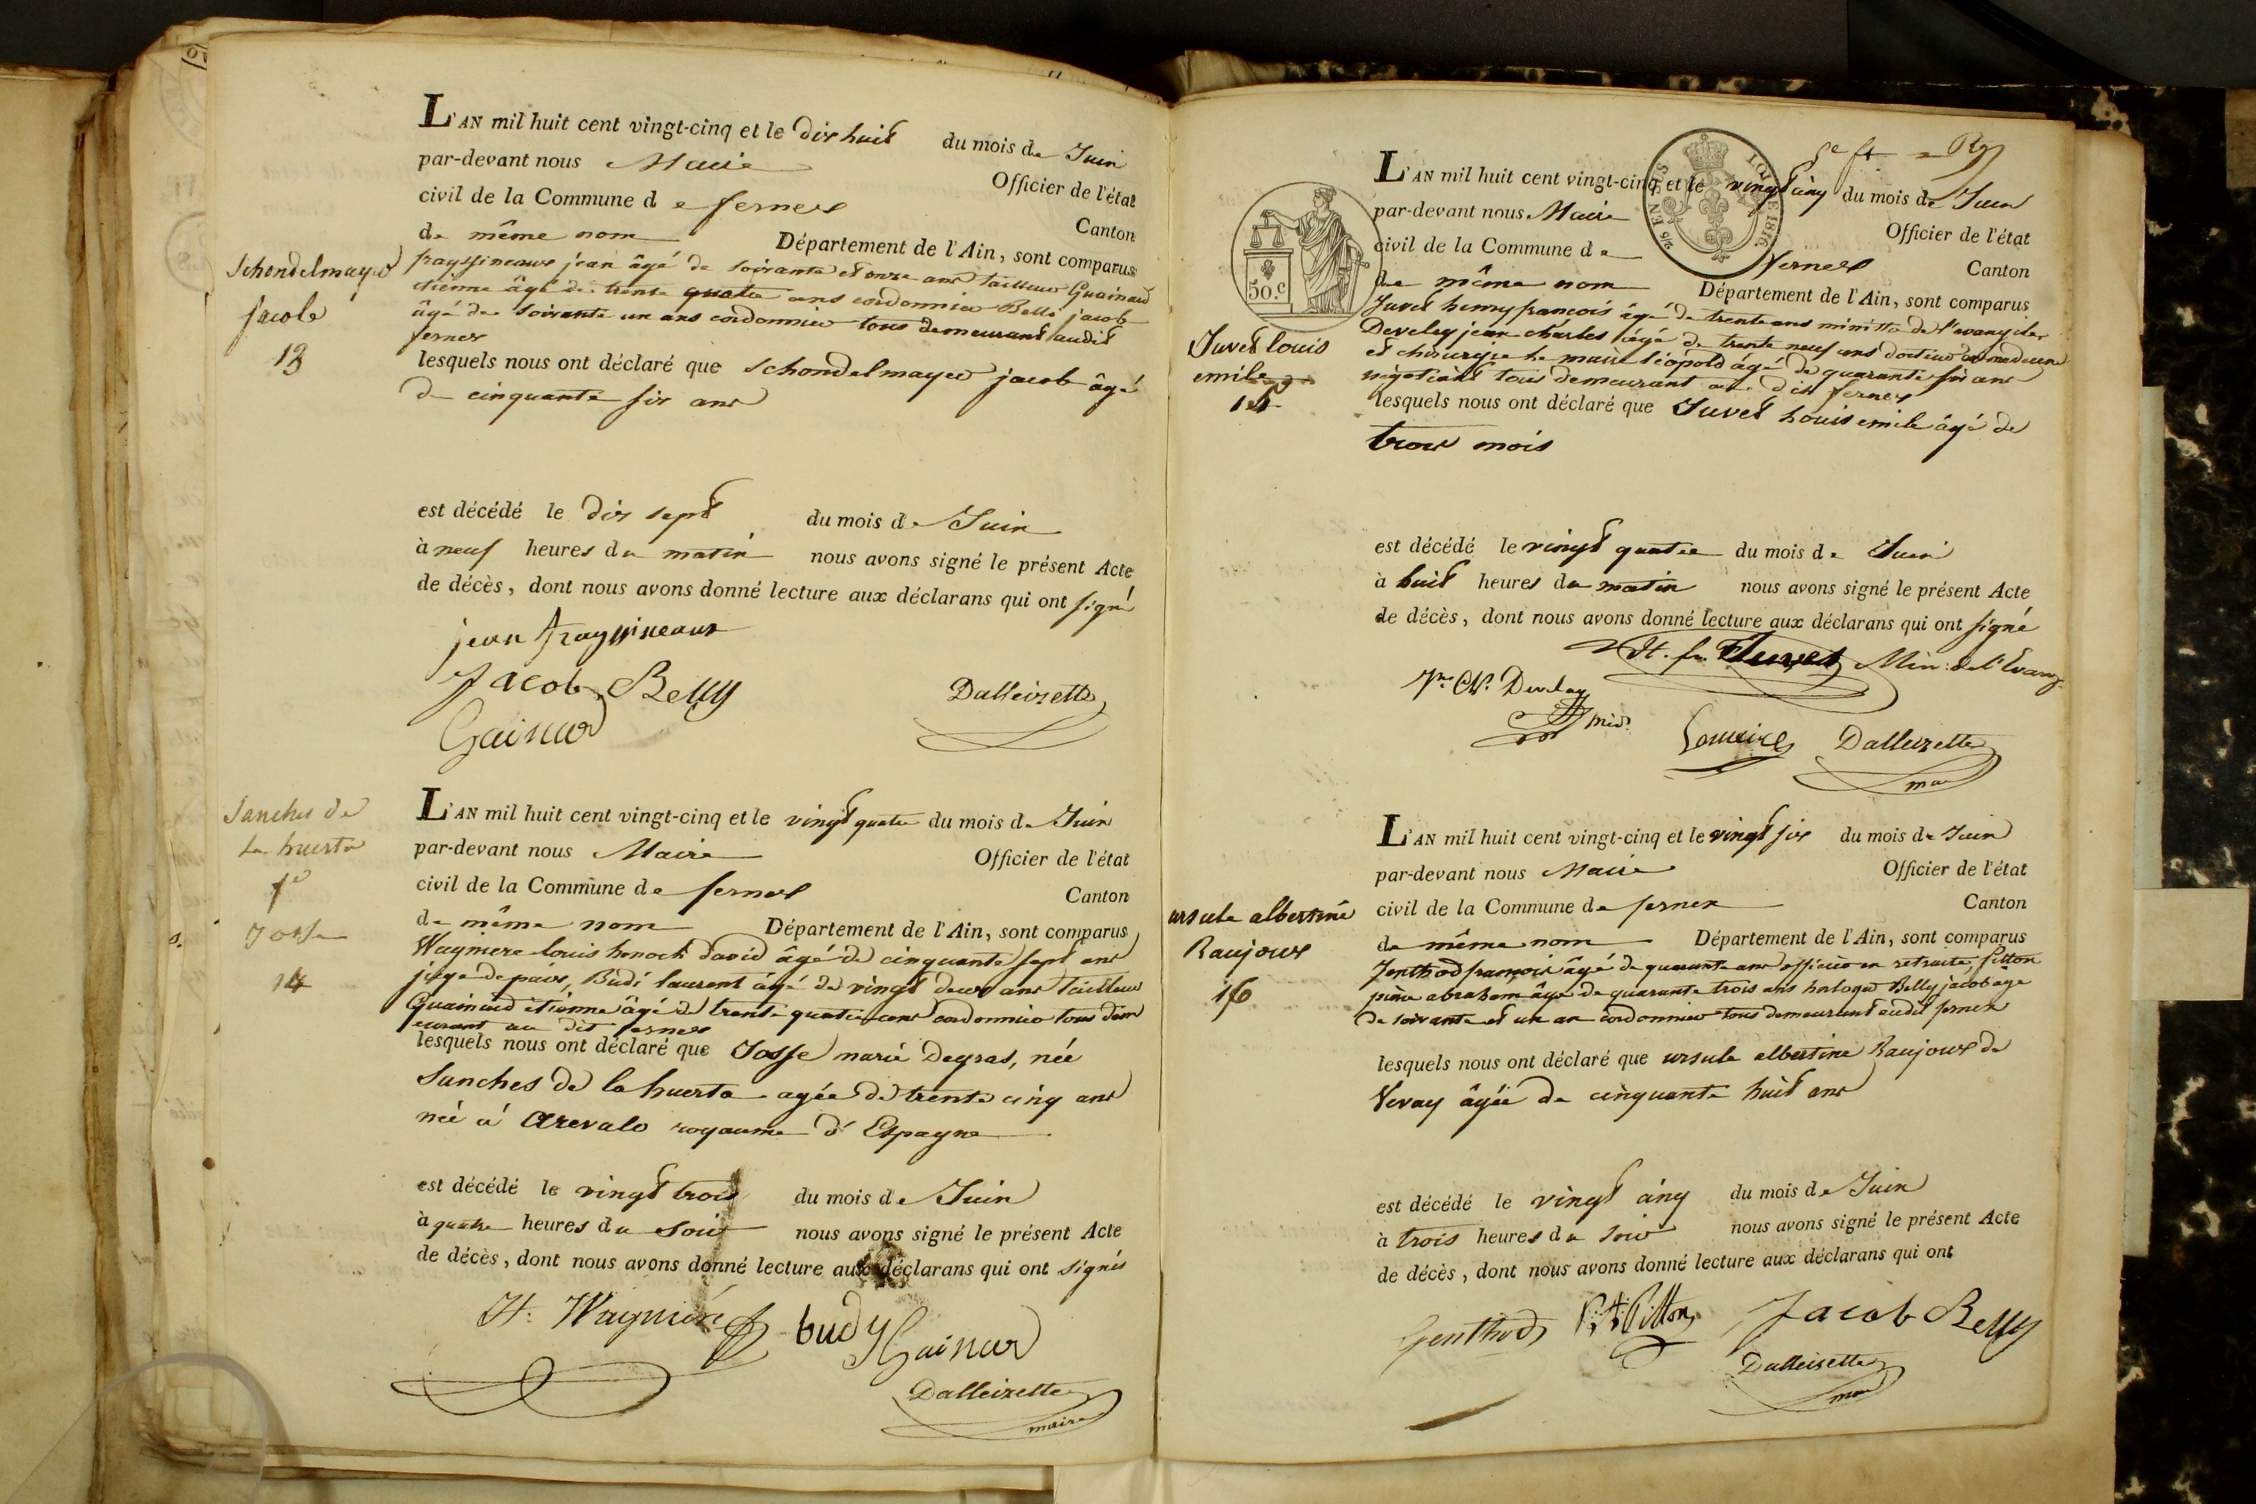 L'AN mil huit cent vingt-cinq et le dix huit du mois de Juin
par-devant nous Maire Officier de l'état
civil de la Commune de fernex Canton
de même nom Département de l'Ain, sont comparus
frayssineaux jean âgé de soixante et onze ans tailleur Guainard
etienne âgé de trente quatre ans cordonnier Belli jacob
âgé de soixante un ans cordonnier tous demeurant audit
fernex
Schondelmayer
jacob
13
lesquels nous ont déclaré que Schondelmayer jacob âgé
de cinquante six ans
est décédé le dix sept du mois de Juin
à neuf heures du matin nous avons signé le présent Acte
de décès, dont nous avons donné lecture aux déclarans qui ont signé
jean frayssineaux
Jacob Belly Dalleizette
Gainard
L'AN mil huit cent vingt-cinq et le vingt quatre du mois de Juin
par-devant nous Maire Officier de l'état
civil de la Commune de fernex Canton
de même nom Département de l'Ain, sont comparus
Wagniere louis henoch david âgé de cinquante sept ans
juge de paix, Budi laurent âgé de vingt deux ans tailleur
Guainard etienne âgé de trente quatre ans cordonnier tous dem
eurant au dit fernex
Sanches de
la huerta
fe
Josse
14
lesquels nous ont déclaré que Josse marie Degras, née
Sanches de la huerta agée de trente cinq ans
née à arevalo royaume d'Espagne
est décédé le vingt trois du mois de Juin
à quatre heures du soir nous avons signé le présent Acte
de décès, dont nous avons donné lecture aux déclarans qui ont signés
H. Wagnière budy Gainard
Dalleizette
maire
LOI DE 1816
50.c
L'AN mil huit cent vingt-cinq et le vingt cinq du mois de Juin
par-devant nous Maire Officier de l'état
civil de la Commune de fernex Canton
de même nom Département de l'Ain, sont comparus
Juvet henry françois âgé de trente ans ministre de l'evangile,
Develey jean charles âgé de trente neuf ans docteur en medecine
et chirurgie le maire léopold âgé de quarante six ans
négociant tous demeurant au dit fernex
Juvet louis
emile
15
lesquels nous ont déclaré que Juvet Louis emile âgé de
trois mois
est décédé le vingt quatre du mois de Juin
à huit heures du matin nous avons signé le présent Acte
de décès, dont nous avons donné lecture aux déclarans qui ont signé
H. fs. Juvet Min: de l'Evang.
Jn. Ch. Develey
Méd.
Lemaire Dalleizette
L'AN mil huit cent vingt-cinq et le vingt six du mois de Juin
par-devant nous Maire Officier de l'état
civil de la Commune de fernex Canton
de même nom Département de l'Ain, sont comparus
Jenthod françois âgé de quarante ans officier en retraite, pitton
pierre abraham âgé de quarante trois ans horloger Belly jacob age
de soixante et un an cordonnier tous demeurant audit fernex
ursule albertine
Raujoux
16
lesquels nous ont déclaré que ursule albertine Raujoux de
Vevay âgée de cinquante huit ans
est décédé le vingt cinq du mois de Juin
à trois heures du soir nous avons signé le présent Acte
de décès, dont nous avons donné lecture aux déclarans qui ont
Genthod Pitton Jacob Belly
Dalleizette